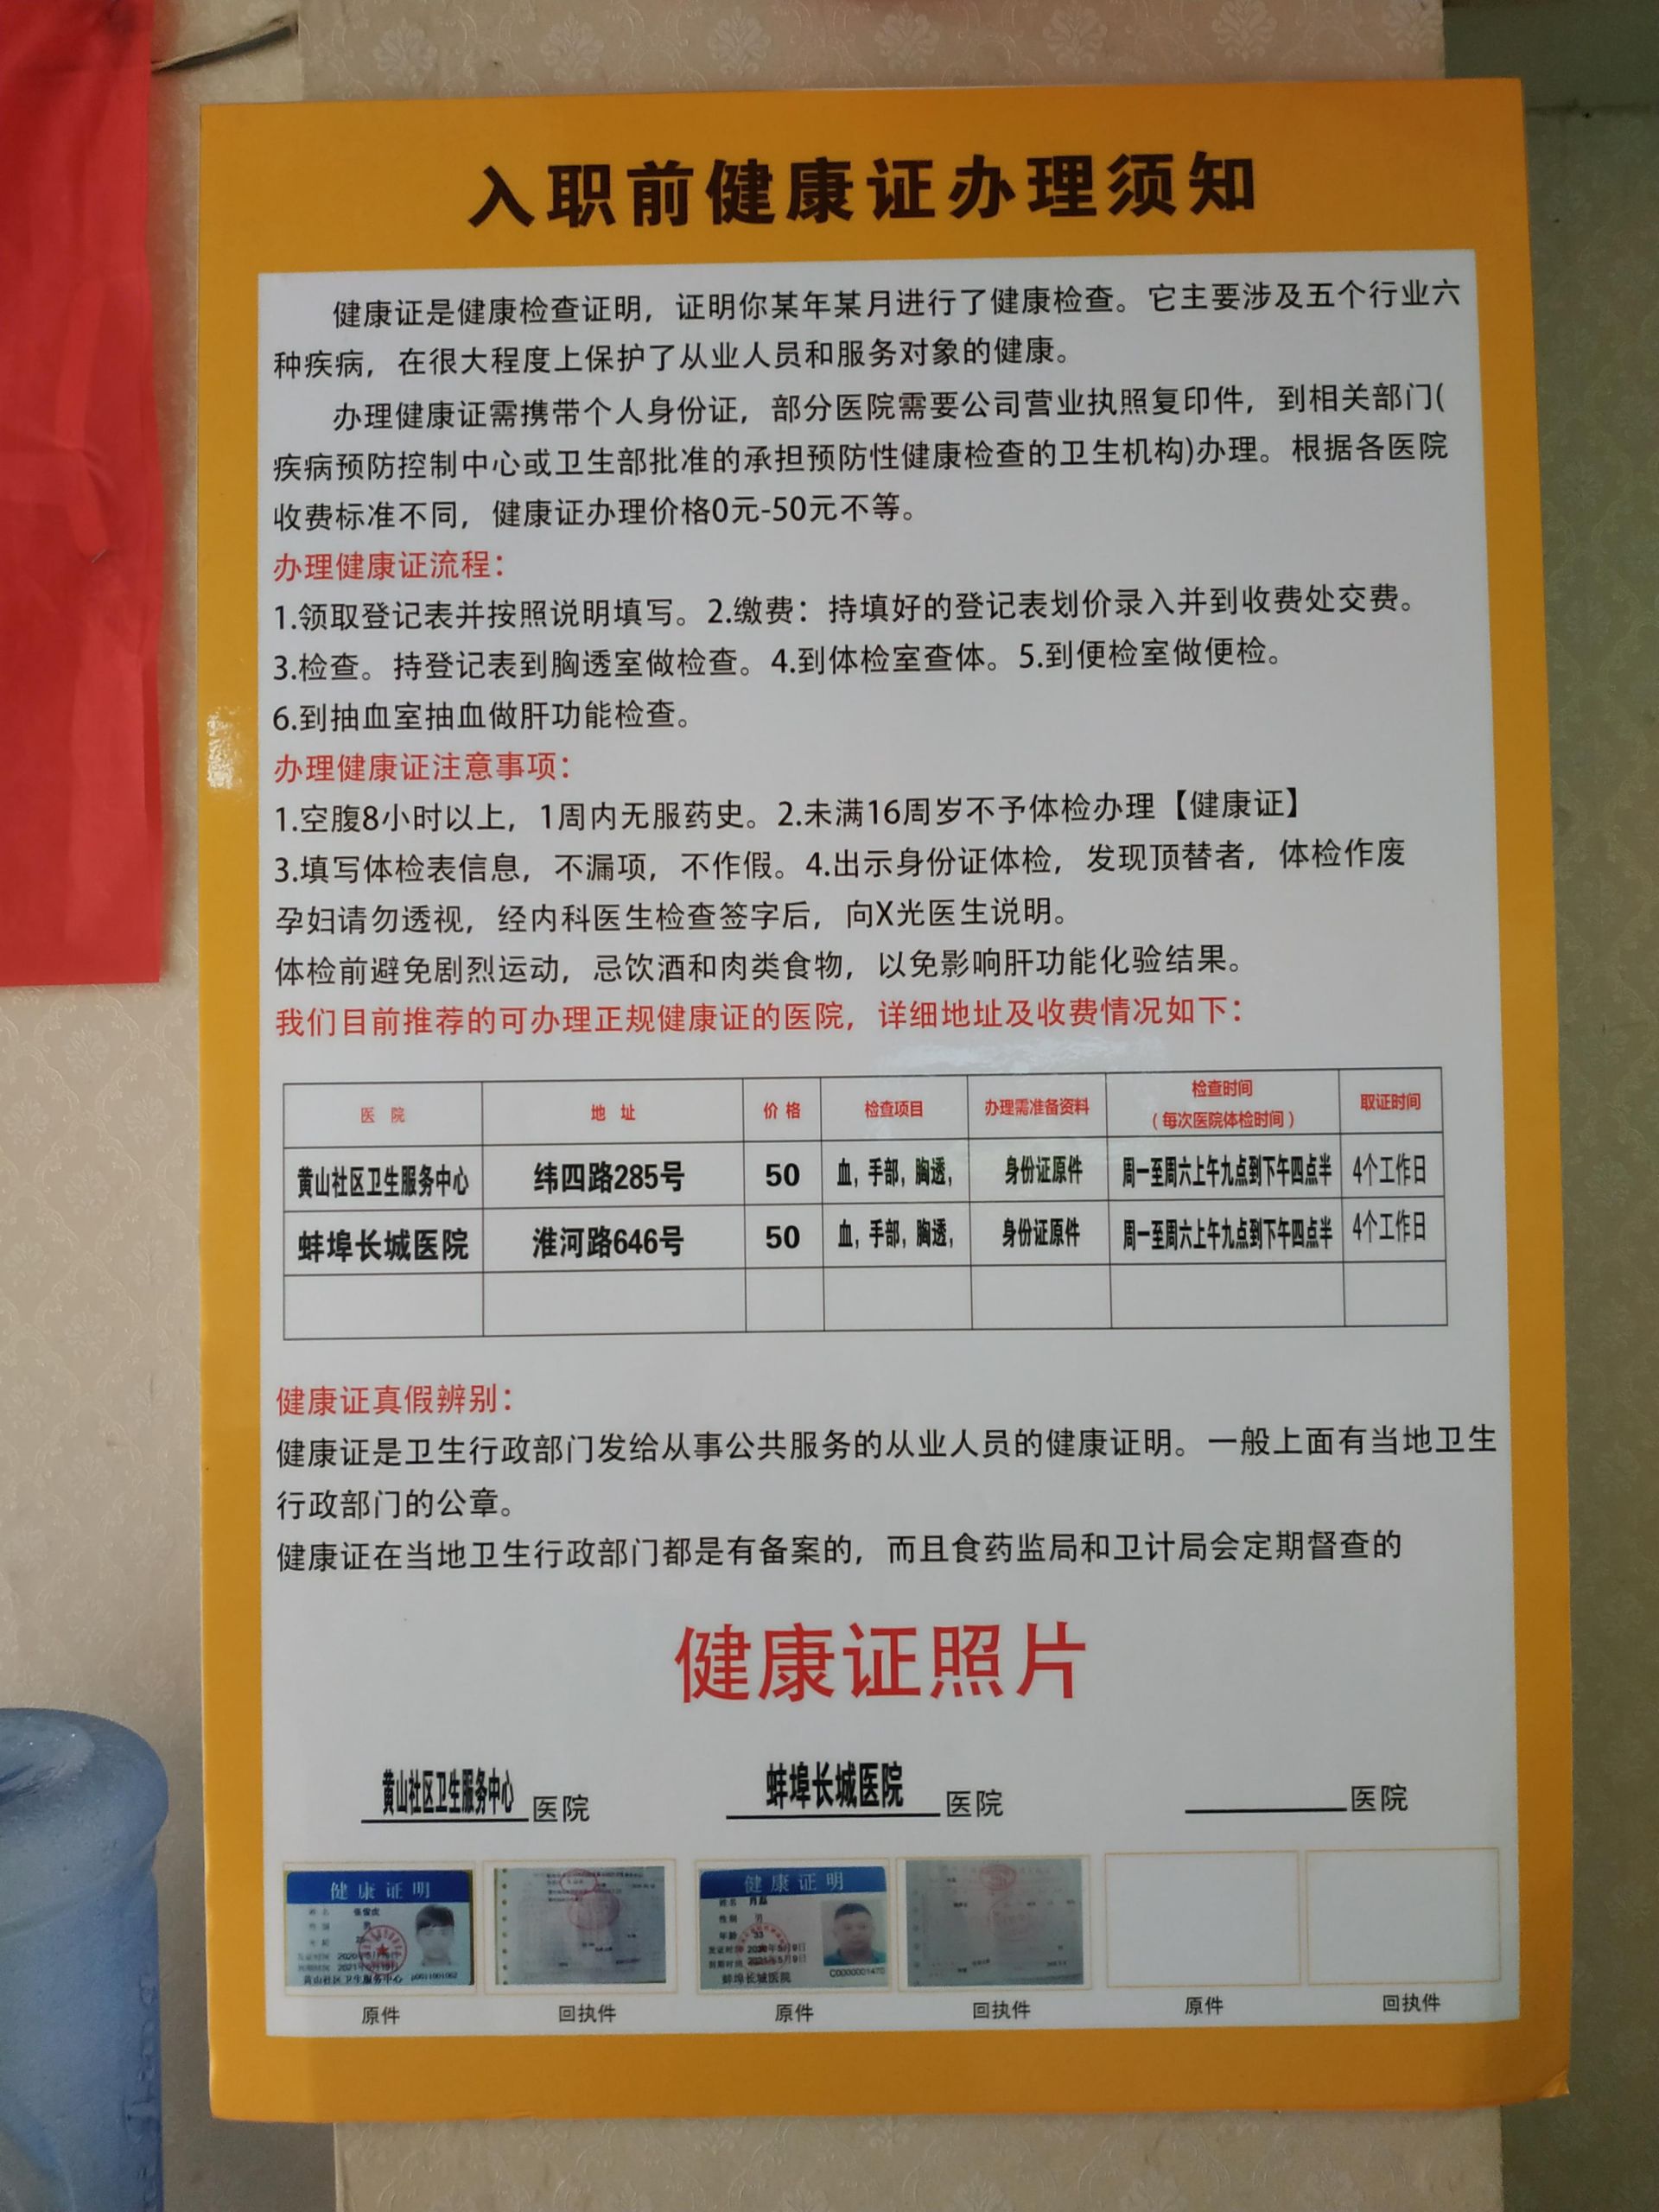 入职前健康证办理须知
健康证是健康检查证明，证明你某年某月进行了健康检查。它主要涉及五个行业六
种疾病，在很大程度上保护了从业人员和服务对象的健康。
办理健康证需携带个人身份证，部分医院需要公司营业执照复印件，到相关部门(
疾病预防控制中心或卫生部批准的承担预防性健康检查的卫生机构)办理。根据各医院
收费标准不同，健康证办理价格0元-50元不等。
办理健康证流程：
1.领取登记表并按照说明填写。2.缴费：持填好的登记表划价录入并到收费处交费。
3.检查。持登记表到胸透室做检查。4.到体检室查体。5.到便检室做便检。
6.到抽血室抽血做肝功能检查。
办理健康证注意事项：
1.空腹8小时以上，1周内无服药史。2.未满16周岁不予体检办理【健康证】
3.填写体检表信息，不漏项，不作假。4.出示身份证体检，发现顶替者，体检作废
孕妇请勿透视，经内科医生检查签字后，向X光医生说明。
体检前避免剧烈运动，忌饮酒和肉类食物，以免影响肝功能化验结果。
我们目前推荐的可办理正规健康证的医院，详细地址及收费情况如下：
医 院 地 址 价 格 检查项目 办理需准备资料 检查时间 取证时间
（每次医院体检时间）
黄山社区卫生服务中心 纬四路285号 50 血，手部，胸透， 身份证原件 周一至周六上午九点到下午四点半 4个工作日
蚌埠长城医院 淮河路646号 50 血，手部，胸透， 身份证原件 周一至周六上午九点到下午四点半 4个工作日
健康证真假辨别：
健康证是卫生行政部门发给从事公共服务的从业人员的健康证明。一般上面有当地卫生
行政部门的公章。
健康证在当地卫生行政部门都是有备案的，而且食药监局和卫计局会定期督查的
健康证照片
黄山社区卫生服务中心 医院 蚌埠长城医院 医院 医院
健康证明
姓名
性别 男
黄山社区卫生服务中心
健康证明
姓名
性别 男
年龄 33
蚌埠长城医院 C0000001470
原件 回执件 原件 回执件 原件 回执件